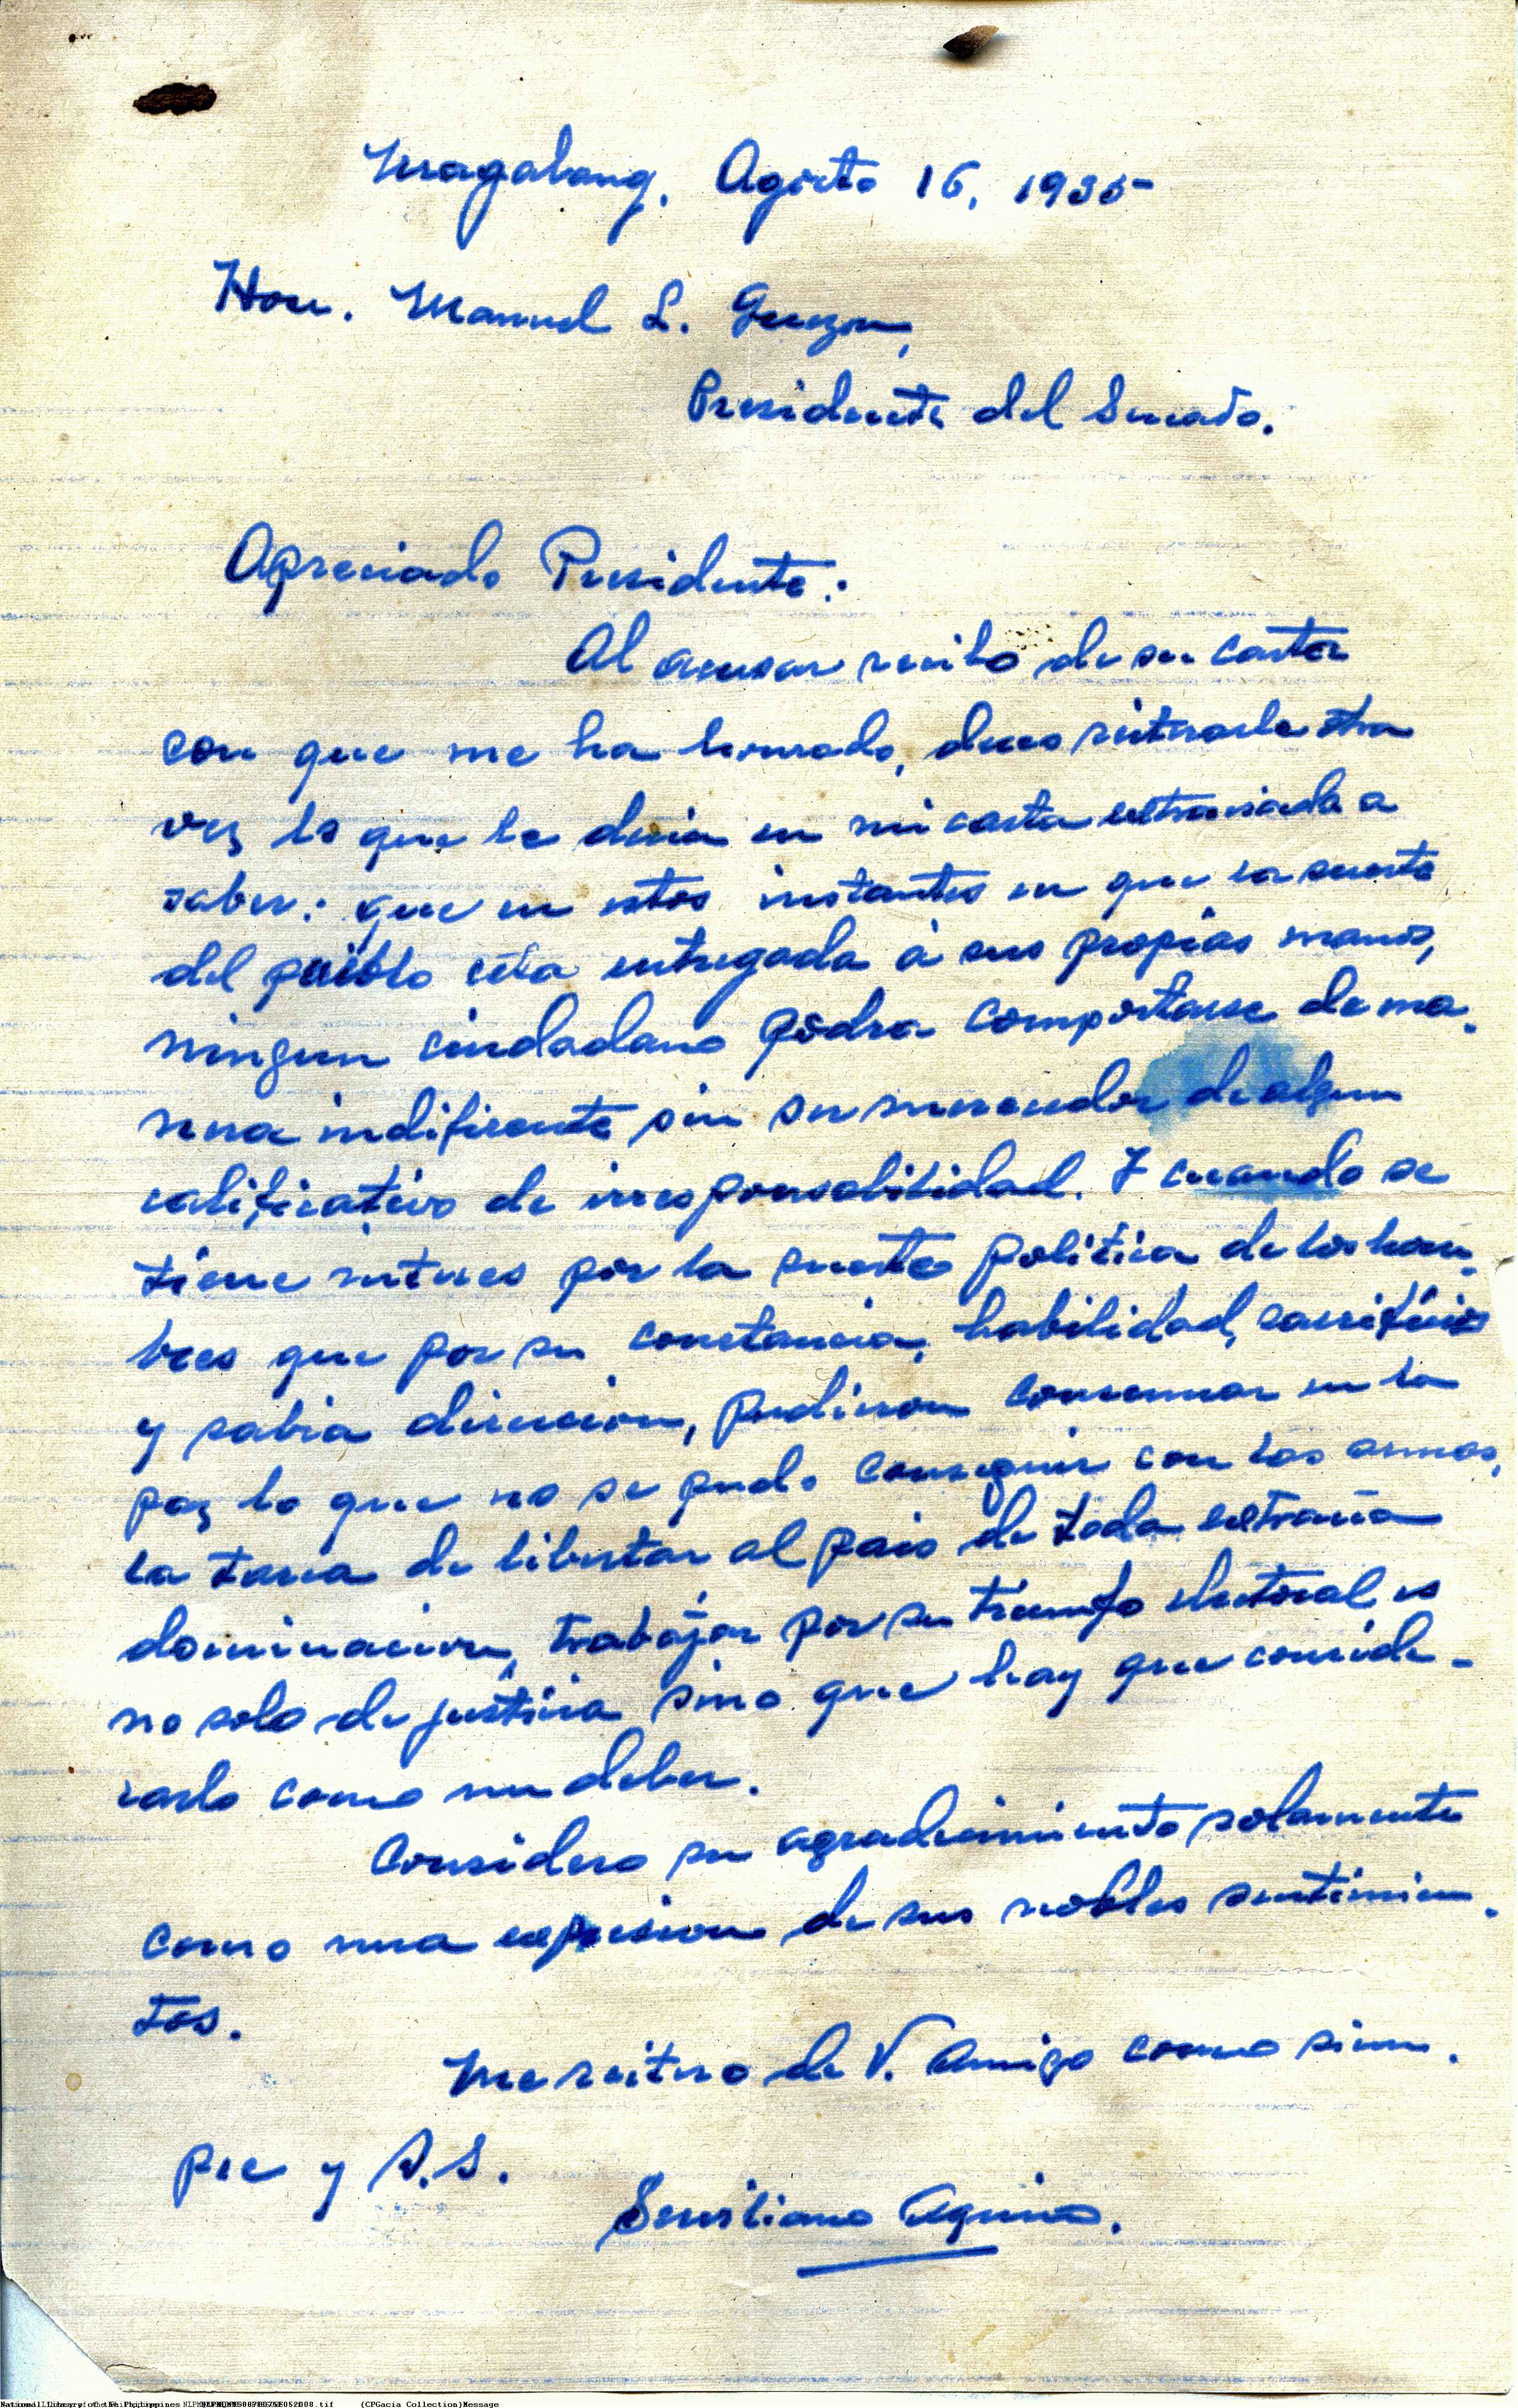 Magalang, Agosto 16, 1935
Hon. Manuel L. Quezon,
Presidente del Senado.
Apreciado Presidente:
Al acusar recibo de su carta
con que me ha honrado, deseo reiterarle otra
vez lo que le decia en mi carta extraviada a
saber: que en estos instantes en que la suerte
del pueblo esta entregada a sus propias manos,
ningun ciudadano podra comportarse de ma-
nera indiferente sin ser merecedor de algun
calificativo de irresponsabilidad. Y cuando se
tiene interes por la suerte politica de los hom-
bres que por su constancia, habilidad, sacrificios
y sabia direccion, pudieron consumar en la
paz lo que no se pudo conseguir con las armas,
la tarea de libertar al pais de toda extraña
dominacion, trabajar por su triunfo electoral es
no solo de justicia sino que hay que conside-
rarlo como un deber.
Considero su agradecimiento solamente
como una expresion de sus nobles sentimien-
tos.
Me reitero de V. amigo como siem-
pre y S.S.
Serviliano Aquino.
(CPGacia Collection)Message